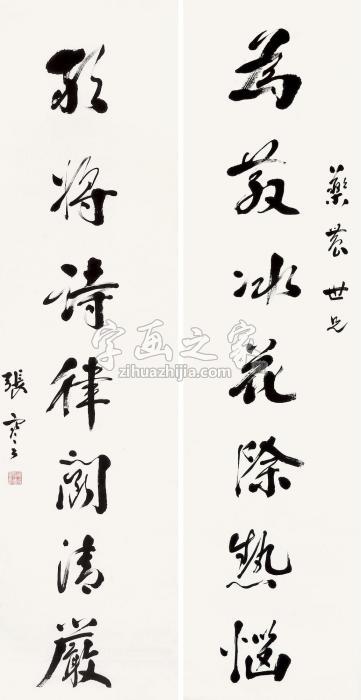 藥農世兄
為散冰花除熱惱
敢將詩律鬭清嚴
張
字画之家
zihuazhijia.com